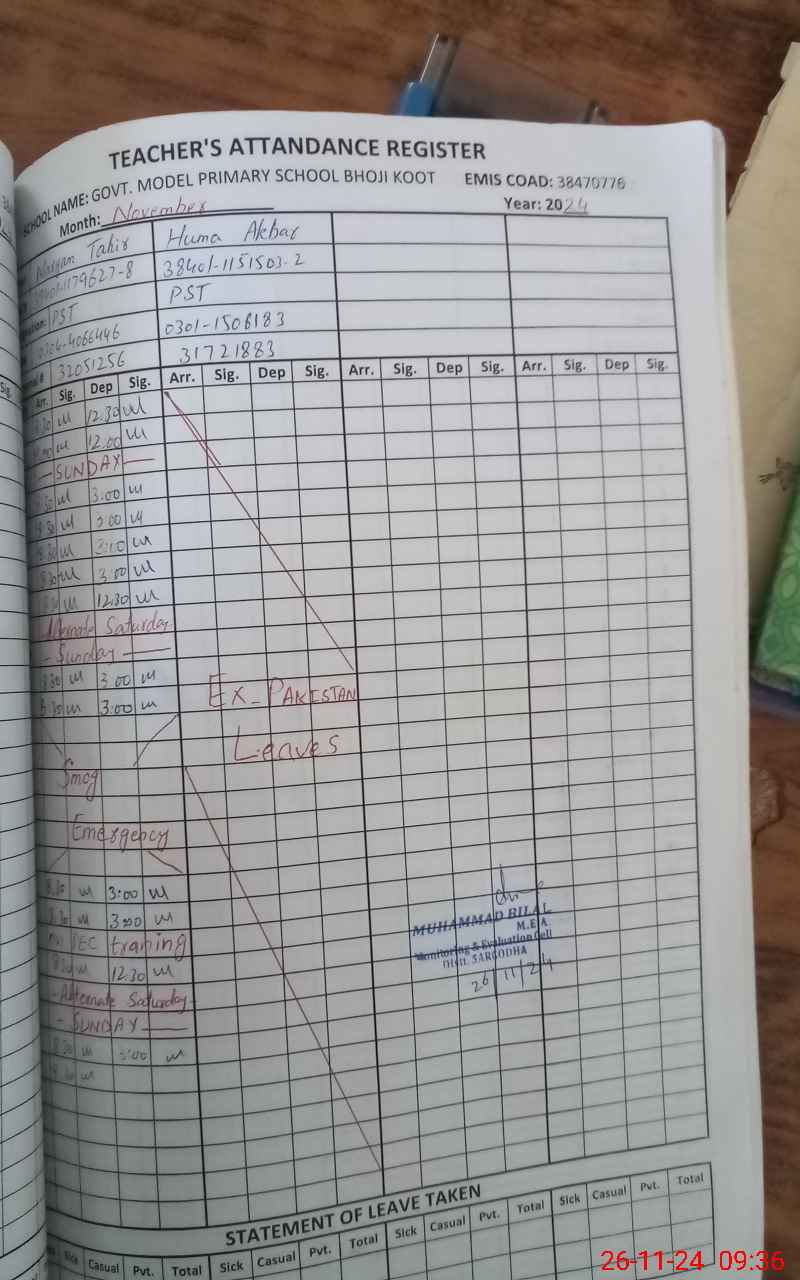 TEACHER'S ATTANDANCE REGISTER
SCHOOL NAME: GOVT. MODEL PRIMARY SCHOOL BHOJI KOOT EMIS COAD: 38470776
Month: November Year: 2024
Tahir Huma Akbar
38401-1179627-8 38401-1151503-2
PST PST
0304-4066446 0301-1506183
32051256 31721883
Arr. Sig. Dep Sig. Arr. Sig. Dep Sig. Arr. Sig. Dep Sig. Arr. Sig. Dep Sig.
12.30
12.00
SUNDAY
3:00
3:00
3:00
3:00
12.30
Alternate Saturday
- Sunday -
8.30 3:00
8.30 3:00
Ex-PAKISTAN
Leaves
Smog
Emergency
8.30 3:00
8.30 3:00
PEC training
8.30 12.30
- Alternate Saturday
- SUNDAY -
8.30 3:00
MUHAMMAD BILAL
M.E.A.
Monitoring & Evaluation Cell
Distt. SARGODHA
26/11/24
STATEMENT OF LEAVE TAKEN
Sick Casual Pvt. Total Sick Casual Pvt. Total Sick Casual Pvt. Total Sick Casual Pvt. Total
26-11-24 09:36